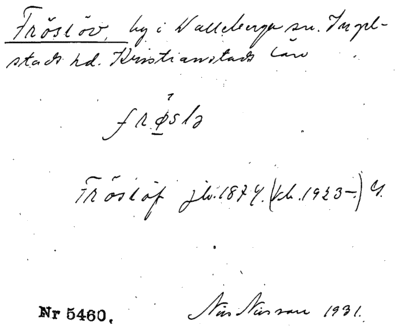 Fröslöv, by i Valleberga sn. Ingel-
stads hd. Kristianstads län
frø̱slə
Fröslöf jlv. 1874. (kh. 1923–.) G.
Nr 5460. Nils Nilsson 1931.